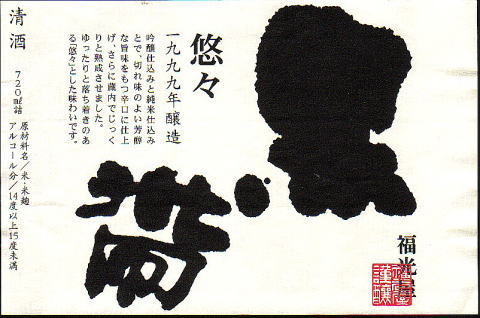 黒帯
悠々
一九九九年醸造
吟醸仕込みと純米仕込み
とで、切れ味のよい芳醇
な旨味をもつ辛口に仕上
げ、さらに蔵内でじっく
りと熟成させました。
ゆったりと落ち着きのあ
る「悠々」とした味わいです。
清酒
720㎖詰
原材料名／米・米麹
アルコール分／14度以上15度未満
福光屋
謹醸